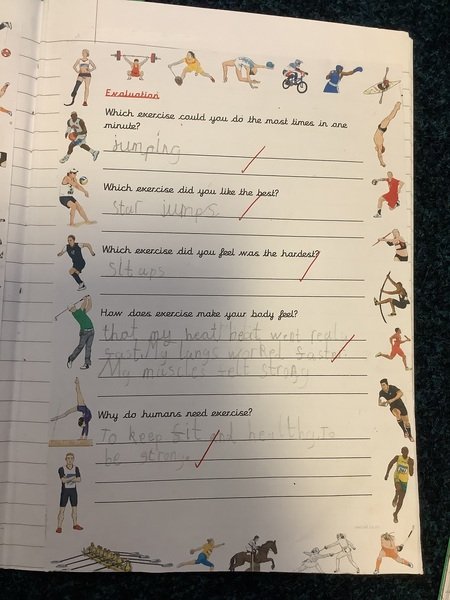 Evaluation
Which exercise could you do the most times in one
minute?
jumping
Which exercise did you like the best?
star jumps.
Which exercise did you feel was the hardest?
sit ups
How does exercise make your body feel?
that my heat beat went realy
fast. My lungs worket faster.
My muscles felt strong
Why do humans need exercise?
To keep fit and healthy. To
be strong